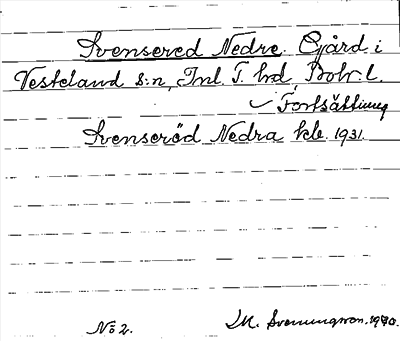 Svensered Nedre. Gård i
Vesteland s:n, Inl. T. hd, Boh. l.
✓ Fortsättning
Svenseröd Nedra kb. 1931.
No 2. M. Svenungson. 1930.